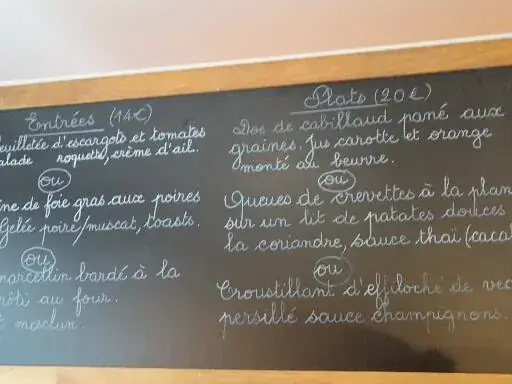 Entrées (14€)
euilletée d'escargots et tomates
alade roquette, crème d'ail.
ou
ine de foie gras aux poires
Gelée poire/muscat, toasts.
ou
marcellin bardé à la
rôti au four.
mesclun.
Plats (20€)
Dos de cabillaud pané aux
graines. Jus carotte et orange
monté au beurre.
ou
Queues de crevettes à la plan
sur un lit de patates douces
la coriandre, sauce thaï (caca
ou
Croustillant d'effiloché de vea
persillé sauce champignons.